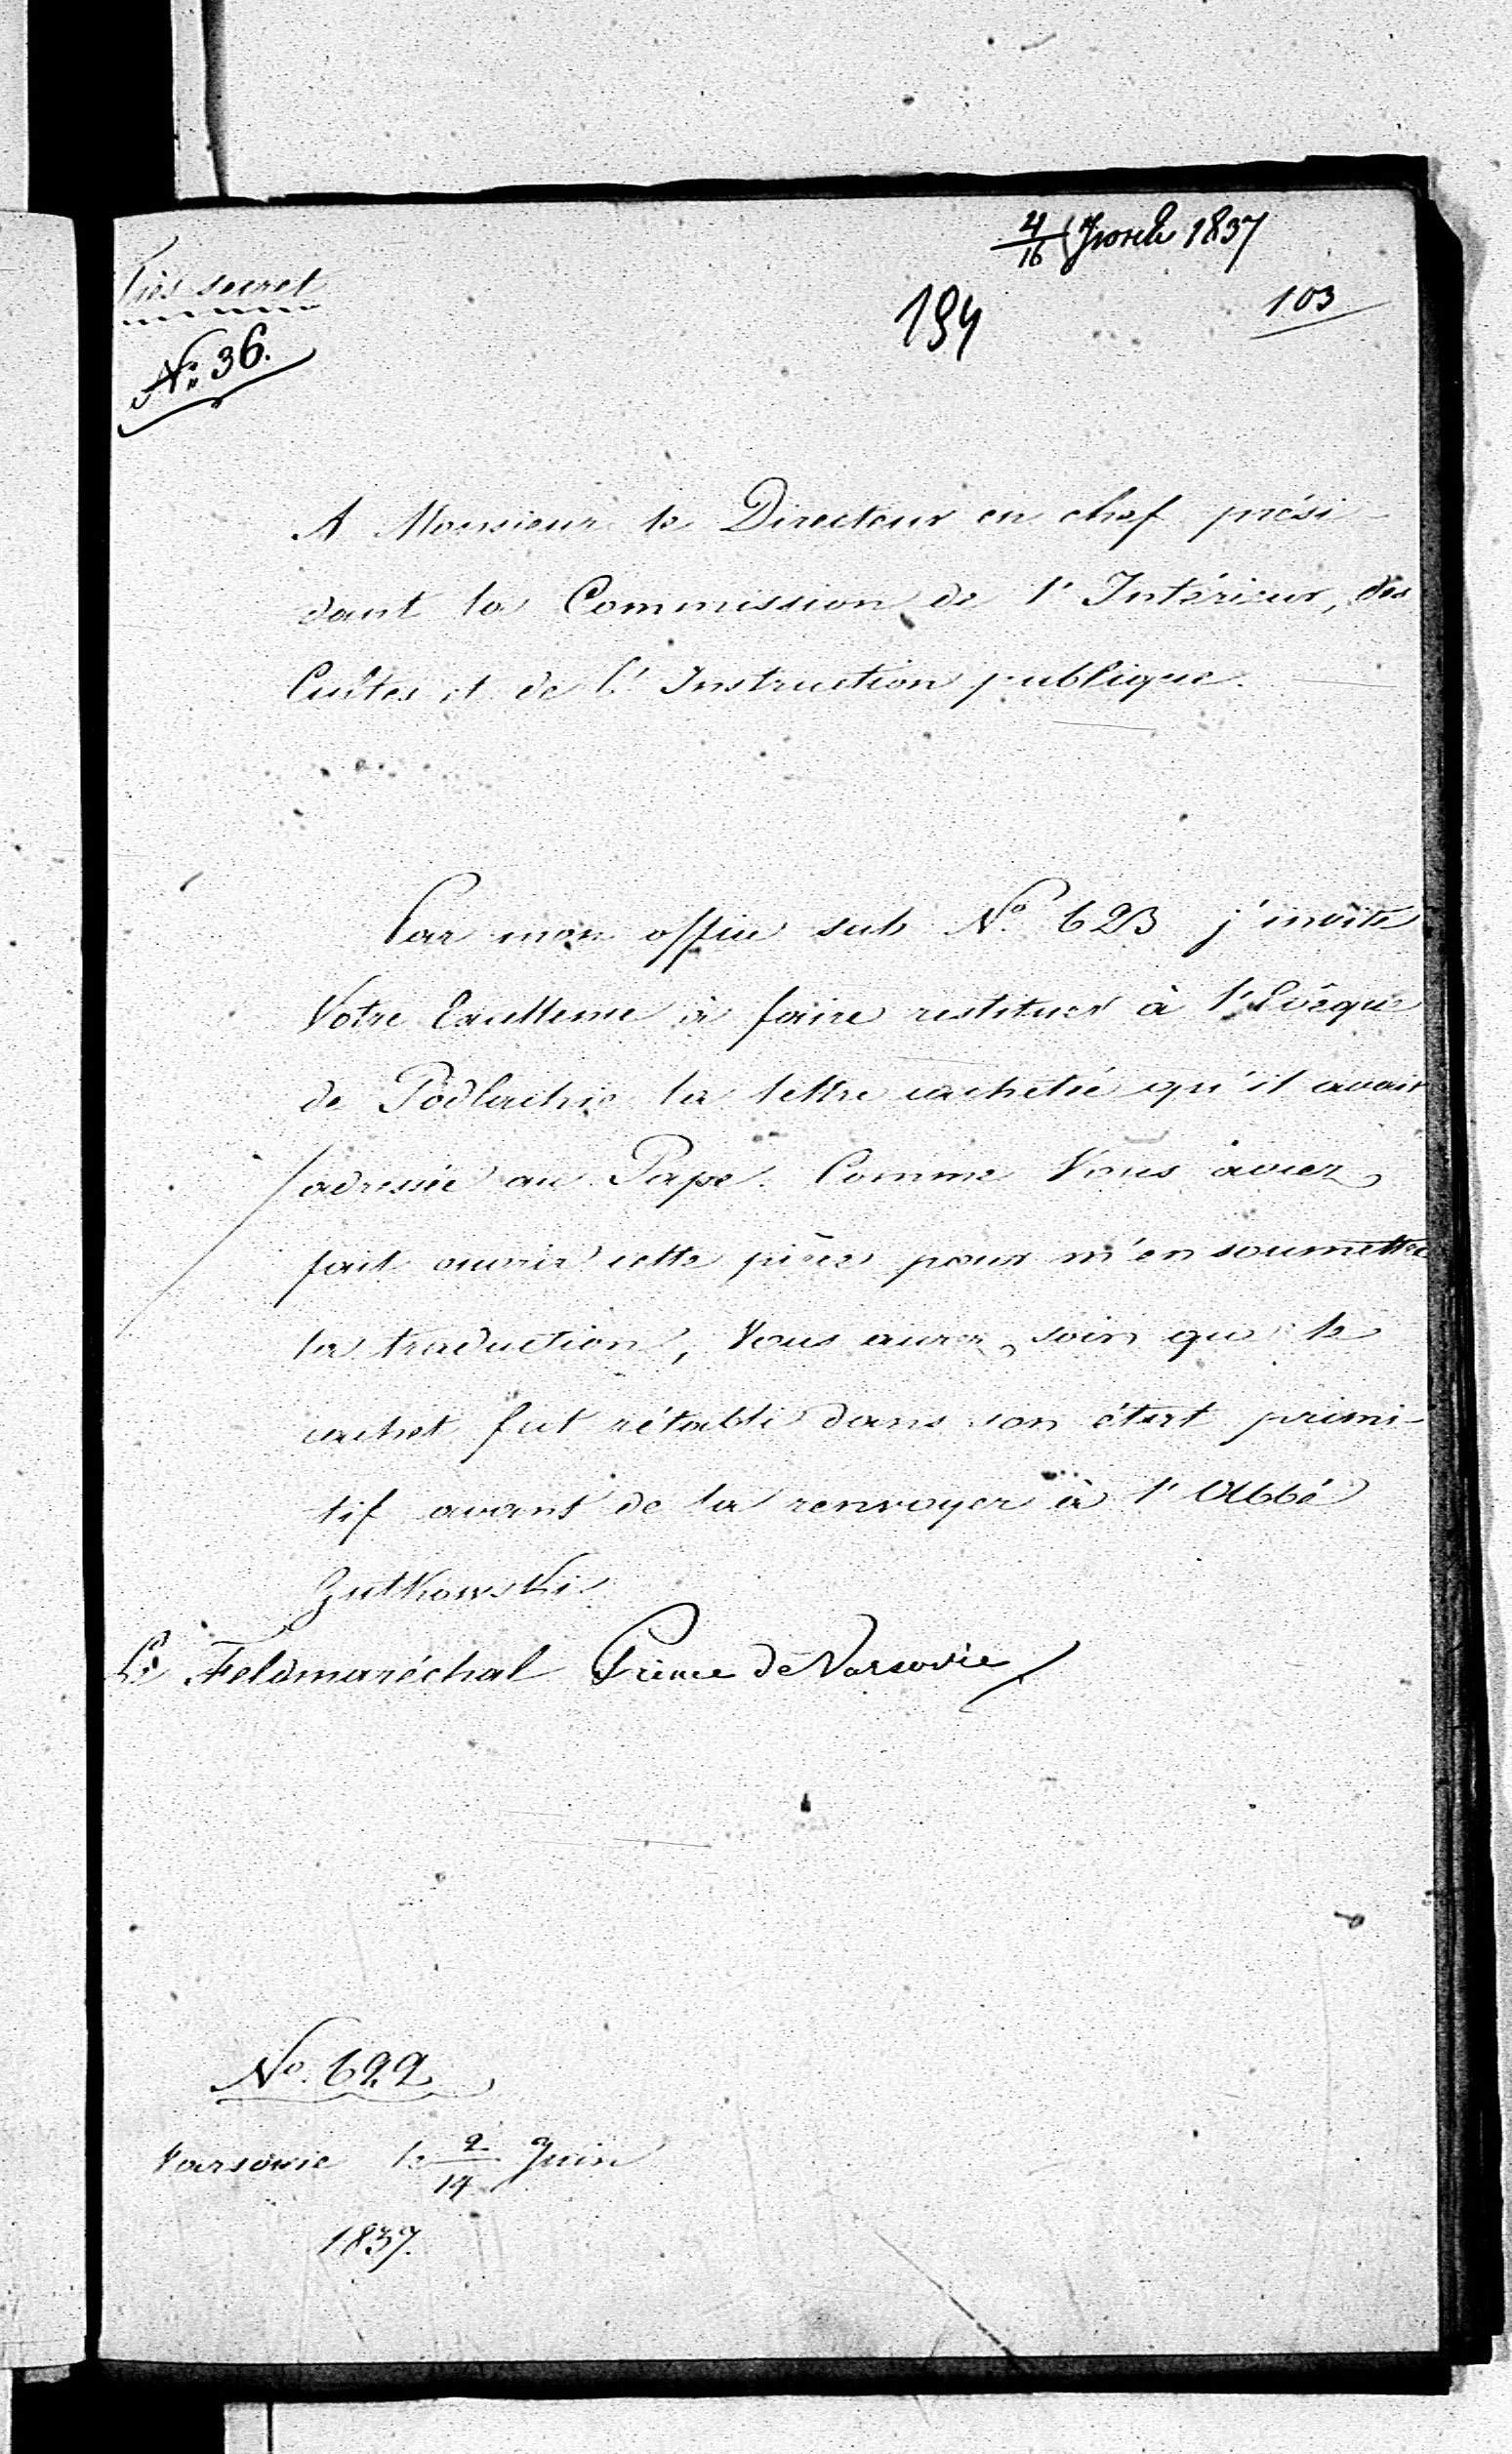 Très secret
№ 36.
4/16 Czerwca 1837
194
103
A Monsieur le Directeur en chef prési-
dant la Commission de l'Intérieur, des
Cultes et de l'Instruction publique.
Par mon office sub No. 623 j'invite
Votre Excellence à faire restituer à l'Evêque
de Podlachie la lettre cachetée qu'il avait
adressée au Pape. Comme Vous aviez
fait ouvrir cette pièce pour m'en soumettre
la traduction, Vous aurez soin que le
cachet fut rétabli dans son état primi-
tif avant de la renvoyer à l'Abbé
Gutkowski
Le Feldmaréchal Prince de Varsovie
No. 622
Varsovie le 2/14 Juin
1837.